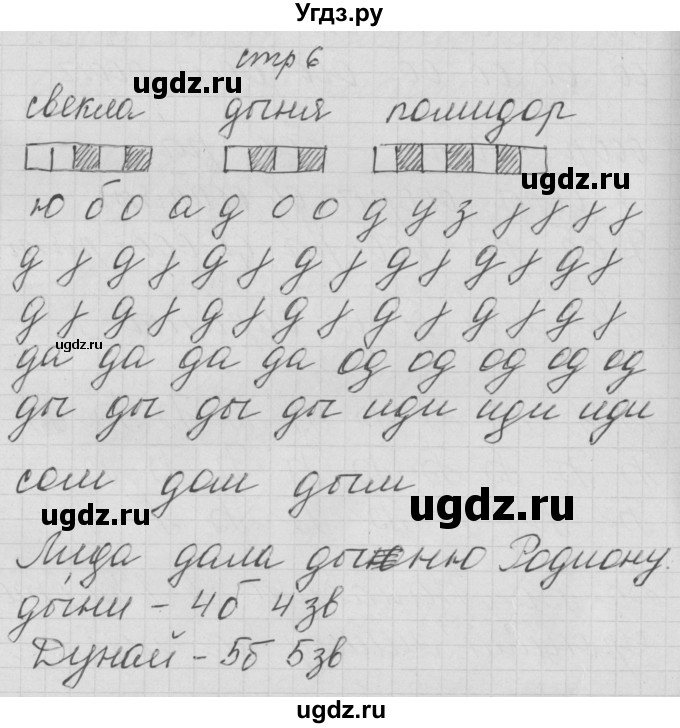 Угдз.ру
стр 6
ugdz.ru
свекла дыня помидор
ugdz.ru
ю б о а д о о д у з
д д д д д д д
д д д д д д д
ugdz.ru
да да да да од од од од од
ды ды ды ды иди иди иди
сом дом дым
ugdz.ru
ugdz.ru
Лида дала ды ню Родиону.
ды́ни - 4б 4зв
Дунай - 5б 5зв
ugdz.ru
Угдз.ру